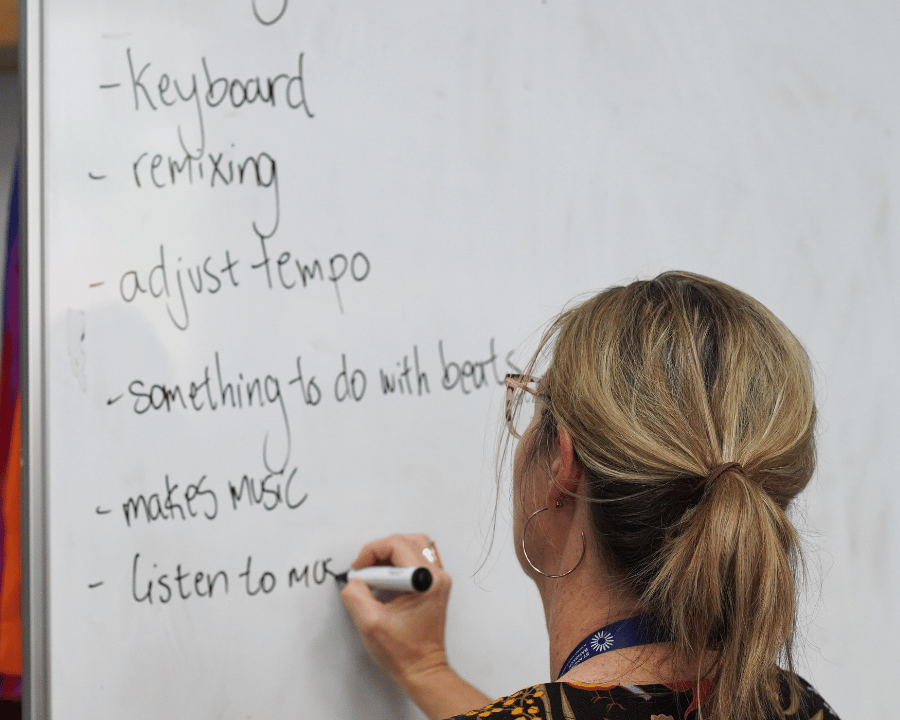 - Keyboard
- remixing
- adjust tempo
- something to do with beats
- makes music
- listen to mus